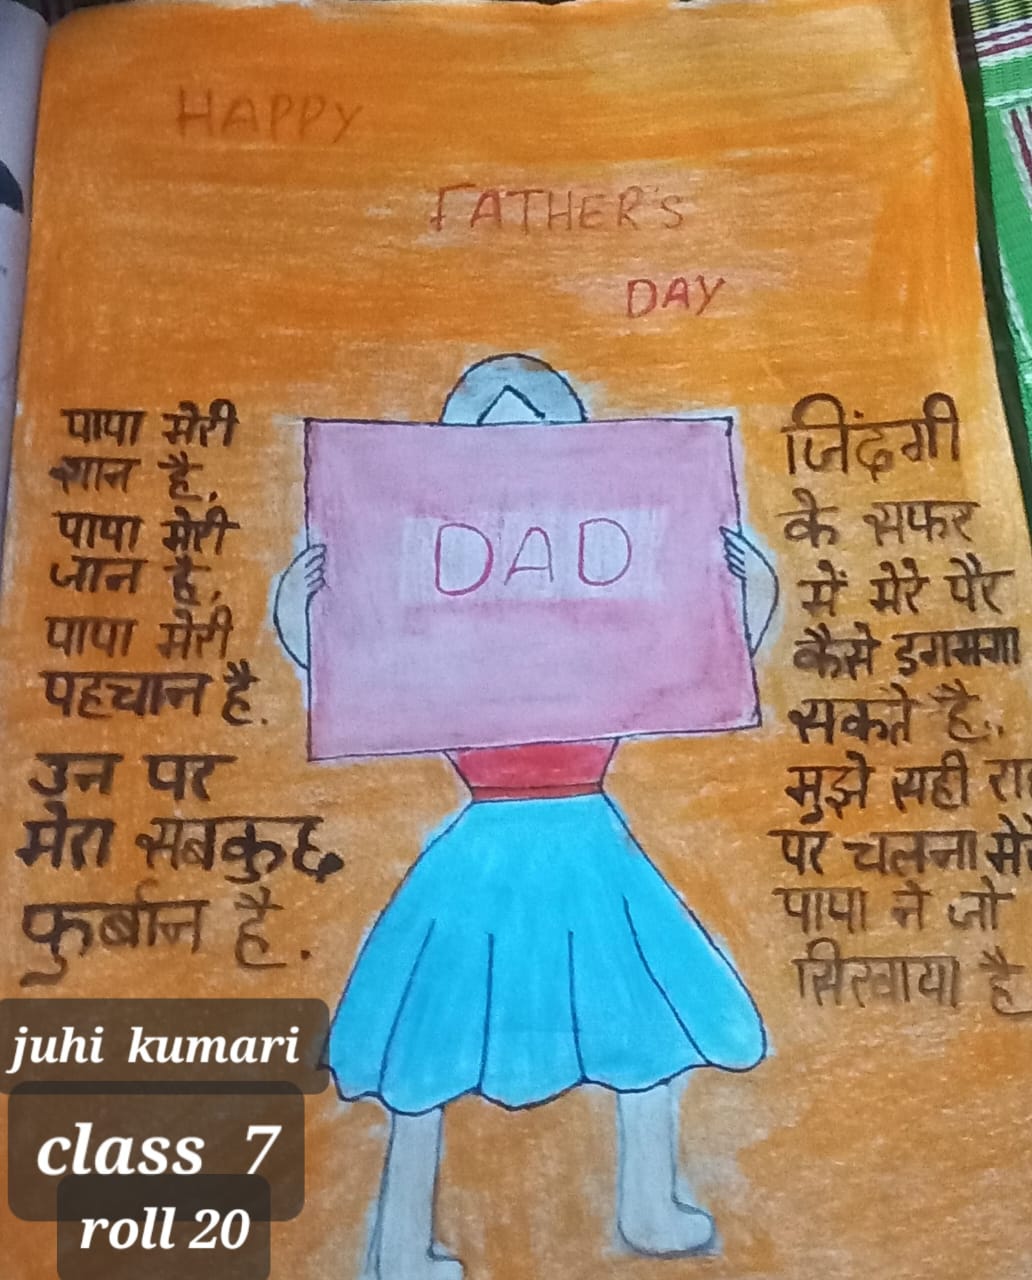 HAPPY
FATHER'S
DAY
DAD
पापा मेरी
शान है,
पापा मेरी
जान है,
पापा मेरी
पहचान है.
उन पर
मेरा सबकुछ
कुर्बान है.
जिंदगी
के सफर
में मेरे पैर
कैसे डगमगा
सकते है..
मुझे सही
पर चलना
पापा ने जो
सिखाया है
juhi kumari
class 7
roll 20